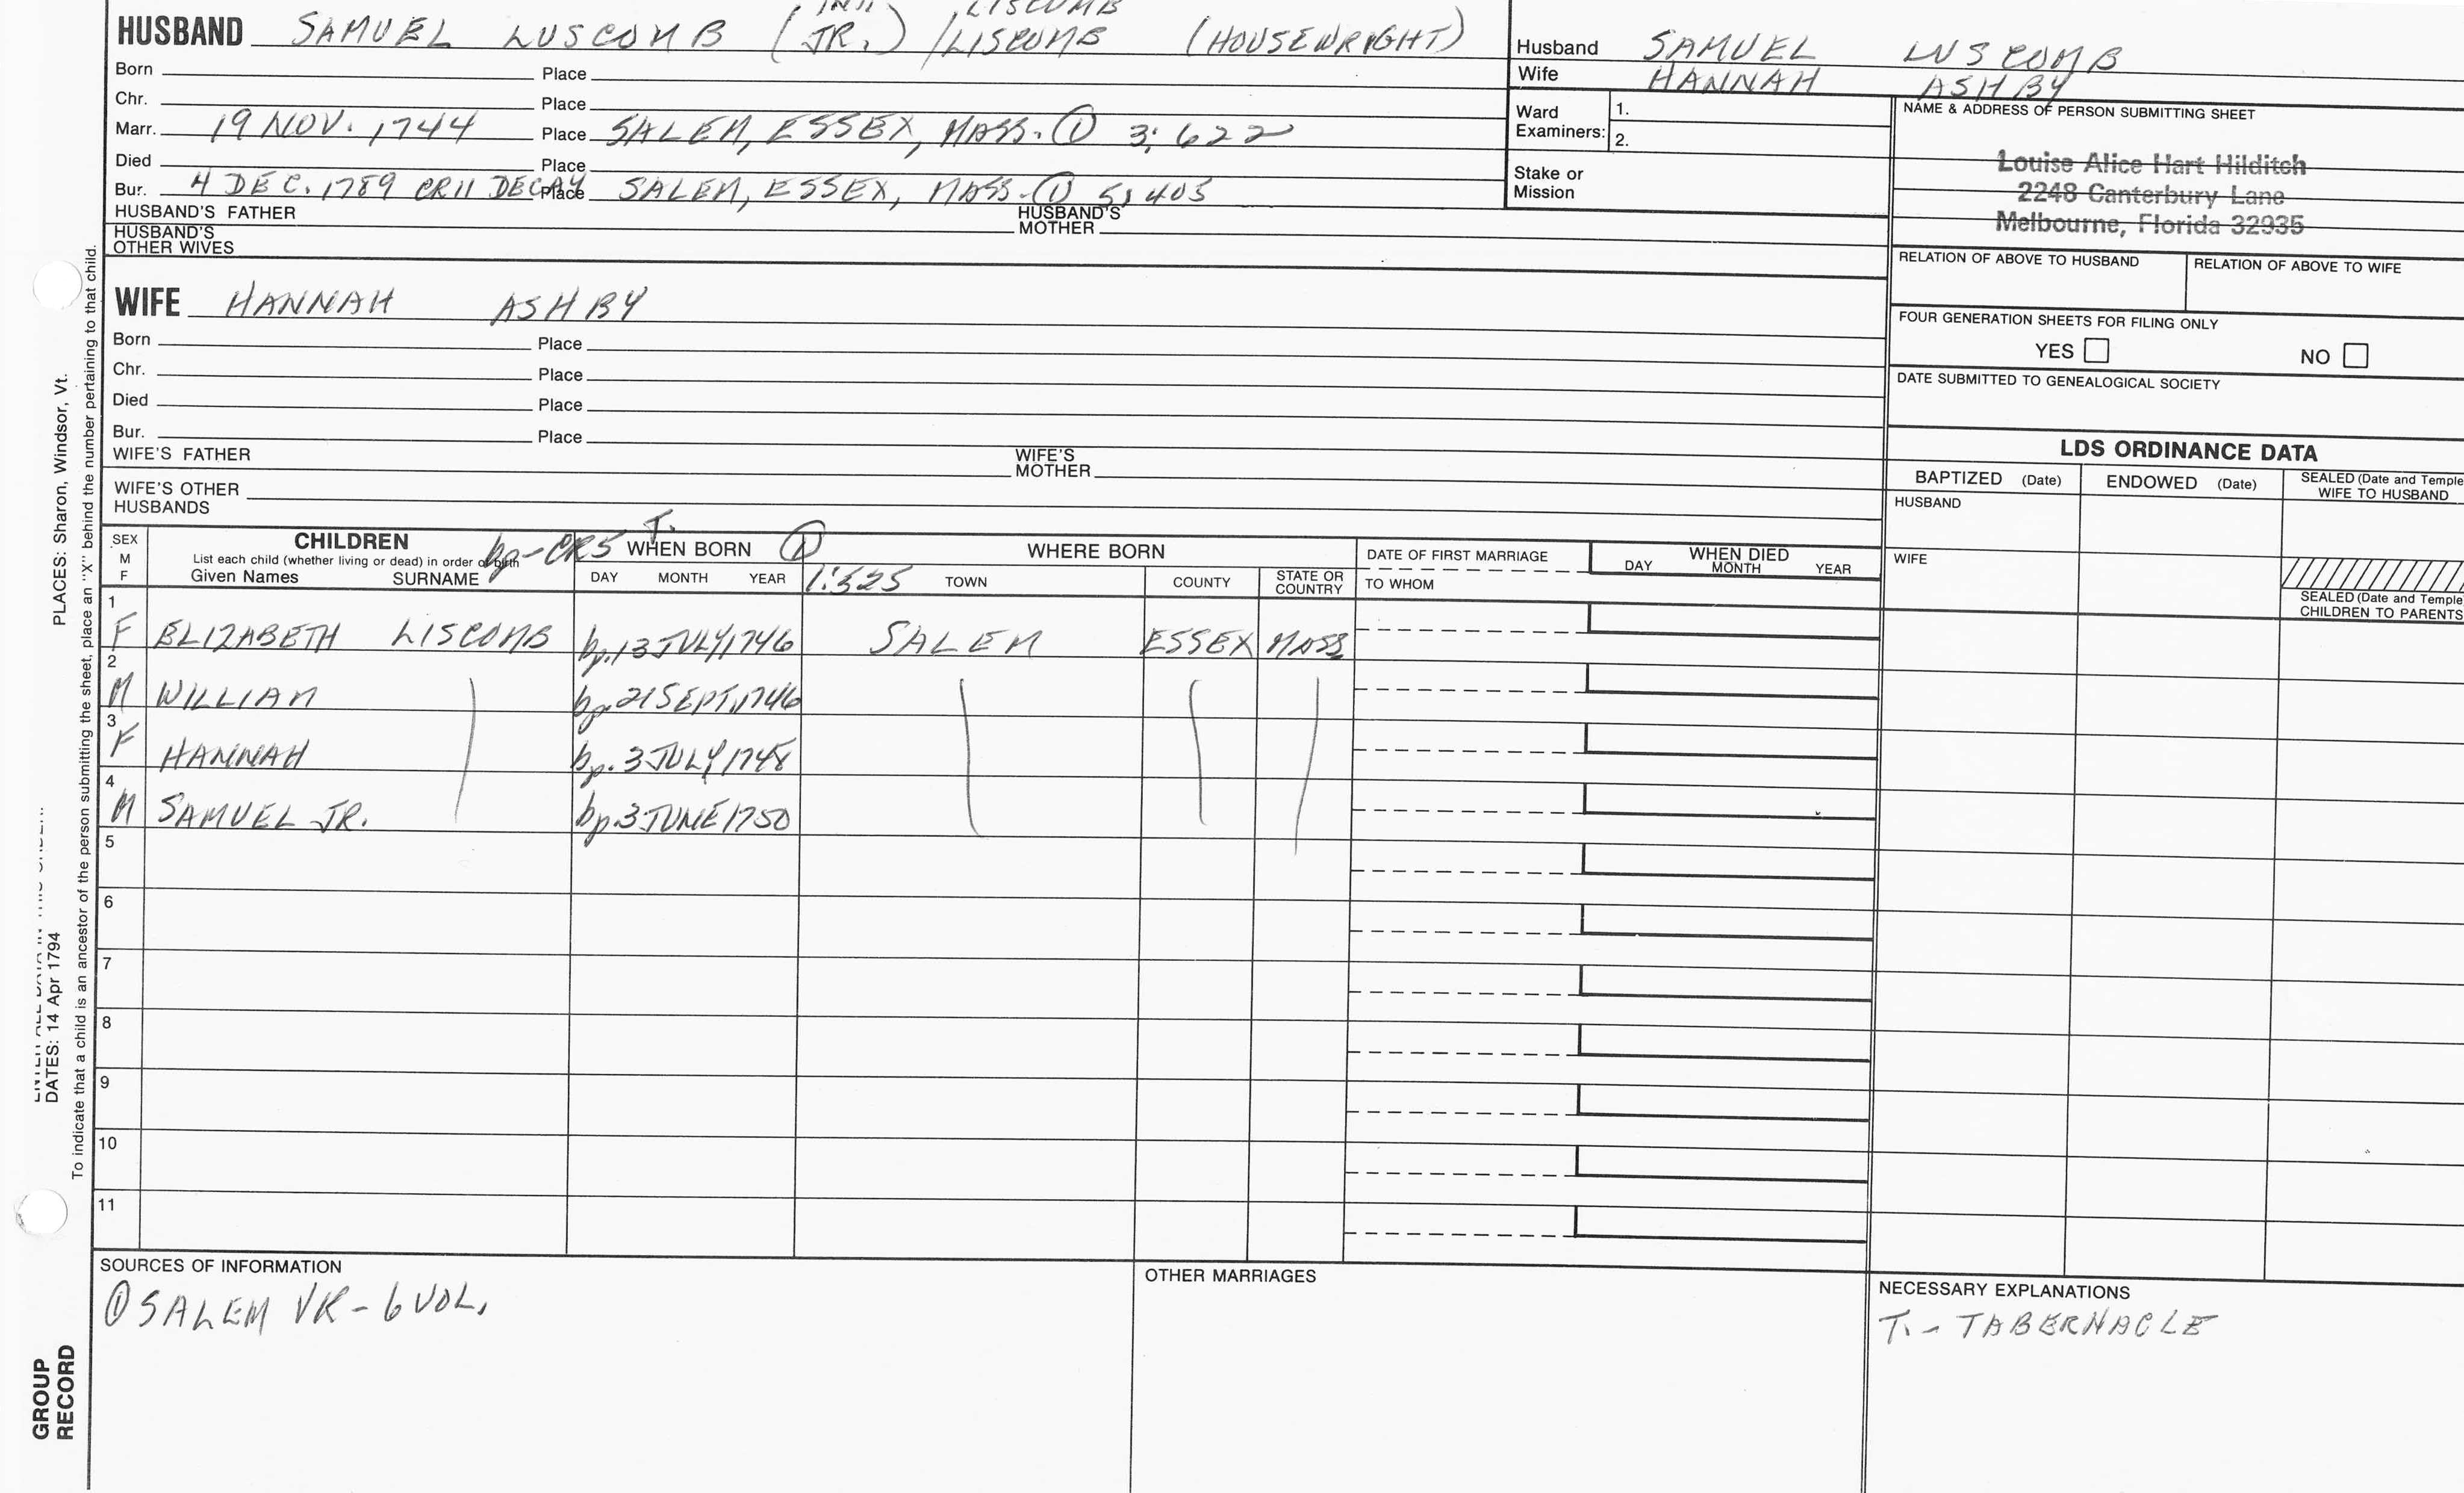 LISCUMB
HUSBAND SAMUEL LUSCOMB (JR.) /LISCOMB (HOUSEWRIGHT)
Born Place
Chr. Place
Marr. 19 NOV. 1744 Place SALEM, ESSEX, MASS. ① 3:622
Died Place
Bur. 4 DEC. 1789 CR11 DECAY Place SALEM, ESSEX, MASS. ① 5:403
HUSBAND'S FATHER HUSBAND'S MOTHER
HUSBAND'S OTHER WIVES
Husband SAMUEL LUSCOMB
Wife HANNAH ASHBY
Ward Examiners: 1.
2.
Stake or Mission
NAME & ADDRESS OF PERSON SUBMITTING SHEET
Louise Alice Hart Hilditch
2248 Canterbury Lane
Melbourne, Florida 32935
RELATION OF ABOVE TO HUSBAND RELATION OF ABOVE TO WIFE
FOUR GENERATION SHEETS FOR FILING ONLY
YES NO
DATE SUBMITTED TO GENEALOGICAL SOCIETY
WIFE HANNAH ASHBY
Born Place
Chr. Place
Died Place
Bur. Place
WIFE'S FATHER WIFE'S MOTHER
WIFE'S OTHER HUSBANDS
LDS ORDINANCE DATA
BAPTIZED (Date) ENDOWED (Date) SEALED (Date and Temple
WIFE TO HUSBAND
HUSBAND
WIFE
SEALED (Date and Temple
CHILDREN TO PARENTS
SEX
M
F
CHILDREN
List each child (whether living or dead) in order of birth
Given Names SURNAME
bp-CR5 T.
WHEN BORN ①
DAY MONTH YEAR
1:525
WHERE BORN
TOWN COUNTY STATE OR COUNTRY
DATE OF FIRST MARRIAGE
TO WHOM
WHEN DIED
DAY MONTH YEAR
1
F ELIZABETH LISCOMB bp.13 JULY,1746 SALEM ESSEX MASS.
2
M WILLIAM bp.21 SEPT,1746
3
F HANNAH bp. 3 JULY 1748
4
M SAMUEL JR. bp.3 JUNE 1750
5
6
7
8
9
10
11
SOURCES OF INFORMATION
① SALEM VR - 6 VOL.
OTHER MARRIAGES
NECESSARY EXPLANATIONS
T. - TABERNACLE
PLACES: Sharon, Windsor, Vt.
DATES: 14 Apr 1794
To indicate that a child is an ancestor of the person submitting the sheet, place an "X" behind the number pertaining to that child.
GROUP
RECORD